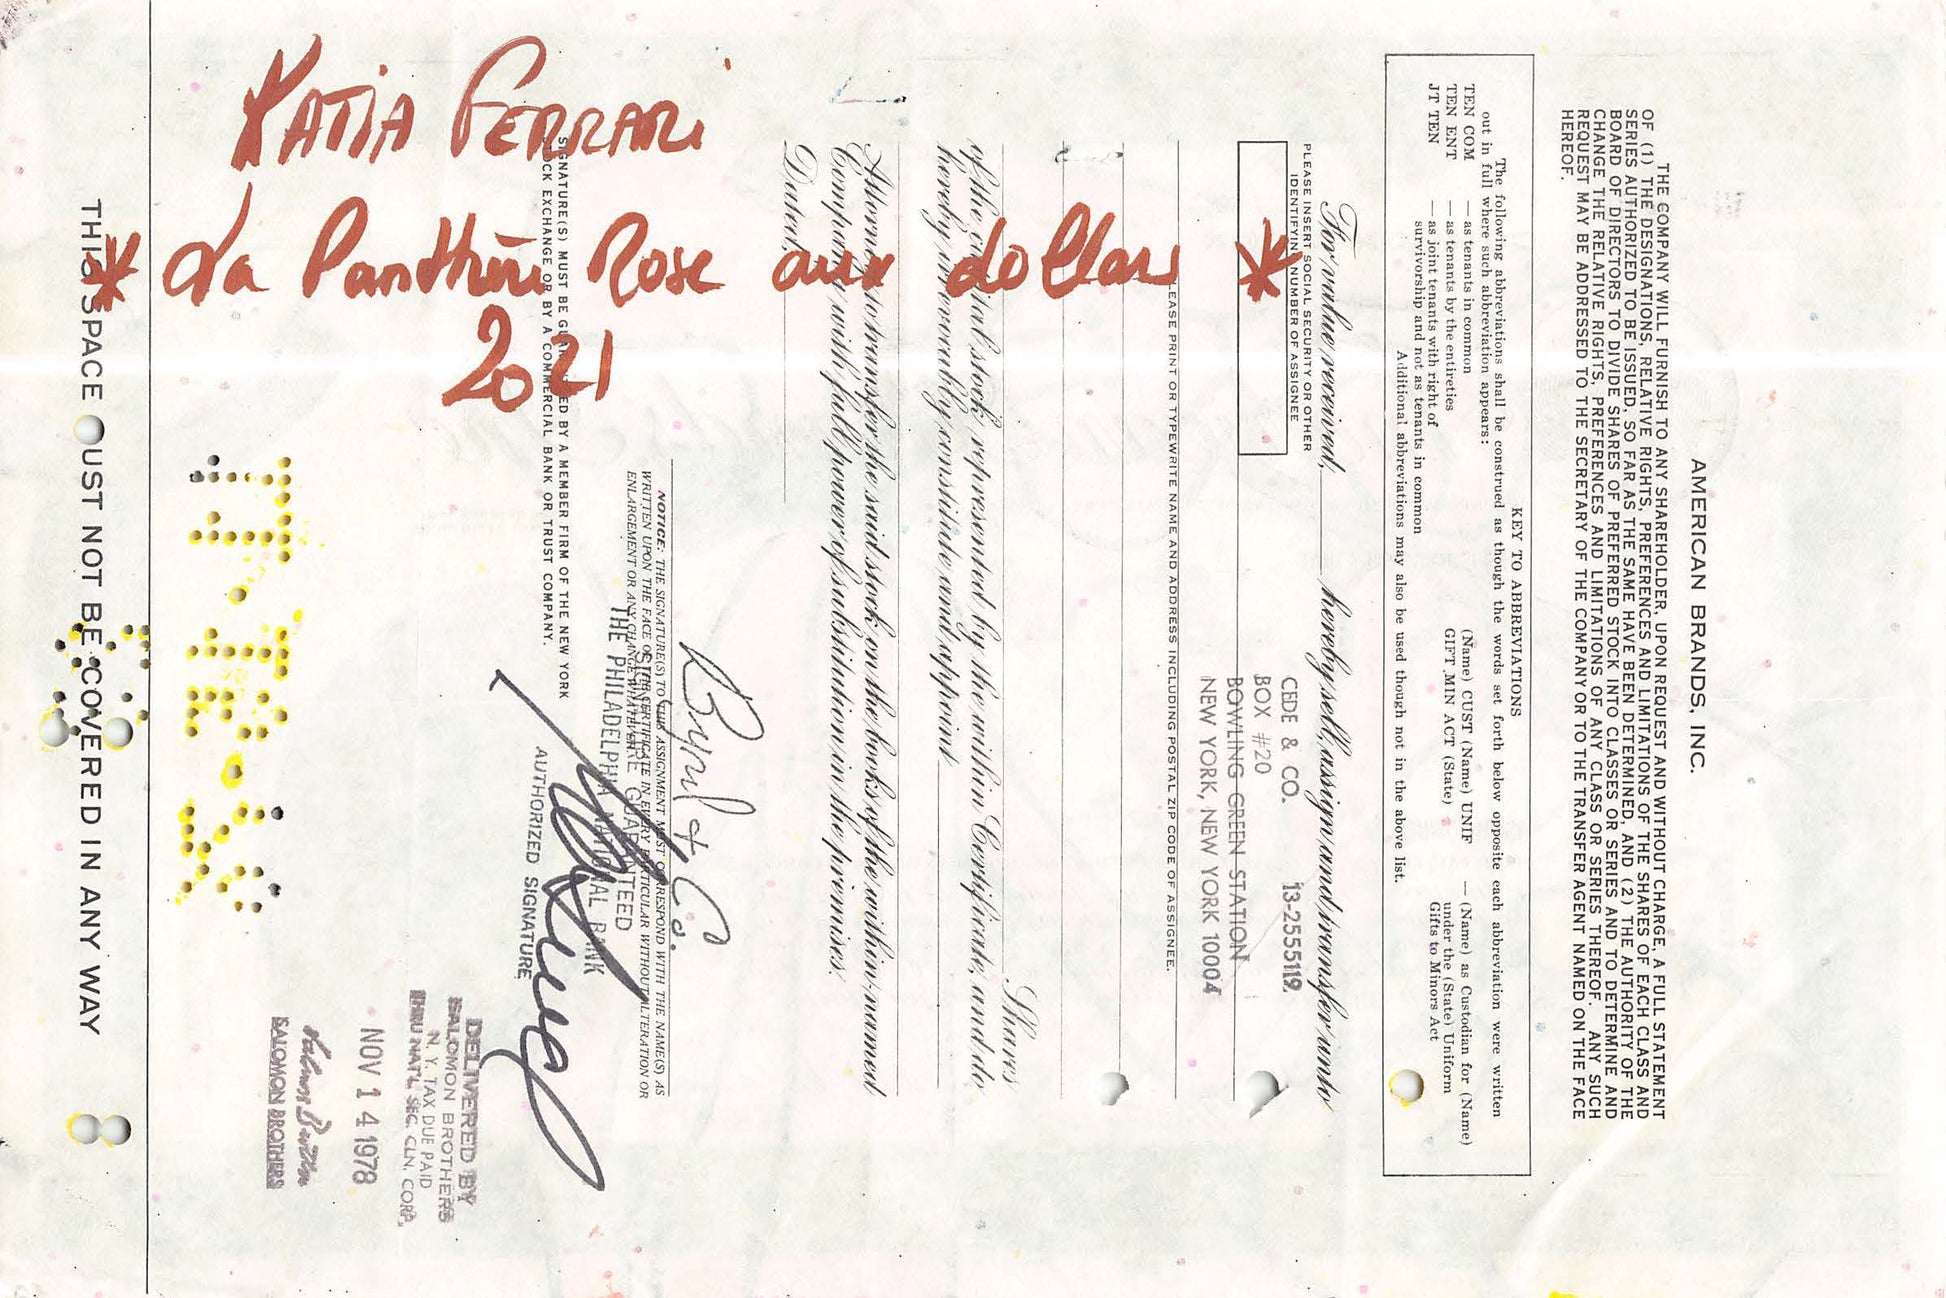 KATIA FERRARI
* La Panthère Rose aux dollars *
2021
AMERICAN BRANDS, INC.
THE COMPANY WILL FURNISH TO ANY SHAREHOLDER, UPON REQUEST AND WITHOUT CHARGE, A FULL STATEMENT
OF (1) THE DESIGNATIONS, RELATIVE RIGHTS, PREFERENCES AND LIMITATIONS OF THE SHARES OF EACH CLASS AND
SERIES AUTHORIZED TO BE ISSUED, SO FAR AS THE SAME HAVE BEEN DETERMINED, AND (2) THE AUTHORITY OF THE
BOARD OF DIRECTORS TO DIVIDE SHARES OF PREFERRED STOCK INTO CLASSES OR SERIES AND TO DETERMINE AND
CHANGE THE RELATIVE RIGHTS, PREFERENCES AND LIMITATIONS OF ANY CLASS OR SERIES THEREOF. ANY SUCH
REQUEST MAY BE ADDRESSED TO THE SECRETARY OF THE COMPANY OR TO THE TRANSFER AGENT NAMED ON THE FACE
HEREOF.
KEY TO ABBREVIATIONS
The following abbreviations shall be construed as though the words set forth below opposite each abbreviation were written
out in full where such abbreviation appears:
TEN COM — as tenants in common (Name) CUST (Name) UNIF — (Name) as Custodian for (Name)
TEN ENT — as tenants by the entireties GIFT MIN ACT (State) under the (State) Uniform
JT TEN — as joint tenants with right of Gifts to Minors Act
survivorship and not as tenants in common
Additional abbreviations may also be used though not in the above list.
For value received, hereby sell, assign and transfer unto
PLEASE INSERT SOCIAL SECURITY OR OTHER
IDENTIFYING NUMBER OF ASSIGNEE
CEDE & CO. 13-2555119
BOX #20
BOWLING GREEN STATION
NEW YORK, NEW YORK 10004
PLEASE PRINT OR TYPEWRITE NAME AND ADDRESS INCLUDING POSTAL ZIP CODE OF ASSIGNEE.
Shares
of the capital stock represented by the within Certificate, and do
hereby irrevocably constitute and appoint
Attorney to transfer the said stock on the books of the within-named
Company with full power of substitution in the premises.
Dated,
Byrd & Co.
NOTICE: THE SIGNATURE(S) TO THIS ASSIGNMENT MUST CORRESPOND WITH THE NAME(S) AS
WRITTEN UPON THE FACE OF THE CERTIFICATE IN EVERY PARTICULAR WITHOUT ALTERATION OR
ENLARGEMENT OR ANY CHANGE WHATEVER.
SIGNATURE GUARANTEED
THE PHILADELPHIA NATIONAL BANK
AUTHORIZED SIGNATURE
SIGNATURE(S) MUST BE GUARANTEED BY A MEMBER FIRM OF THE NEW YORK
STOCK EXCHANGE OR BY A COMMERCIAL BANK OR TRUST COMPANY.
DELIVERED BY
SALOMON BROTHERS
N. Y. TAX DUE PAID
THRU NAT'L SEC. CLN. CORP.
NOV 14 1978
Salomon Brothers
SALOMON BROTHERS
THIS SPACE MUST NOT BE COVERED IN ANY WAY